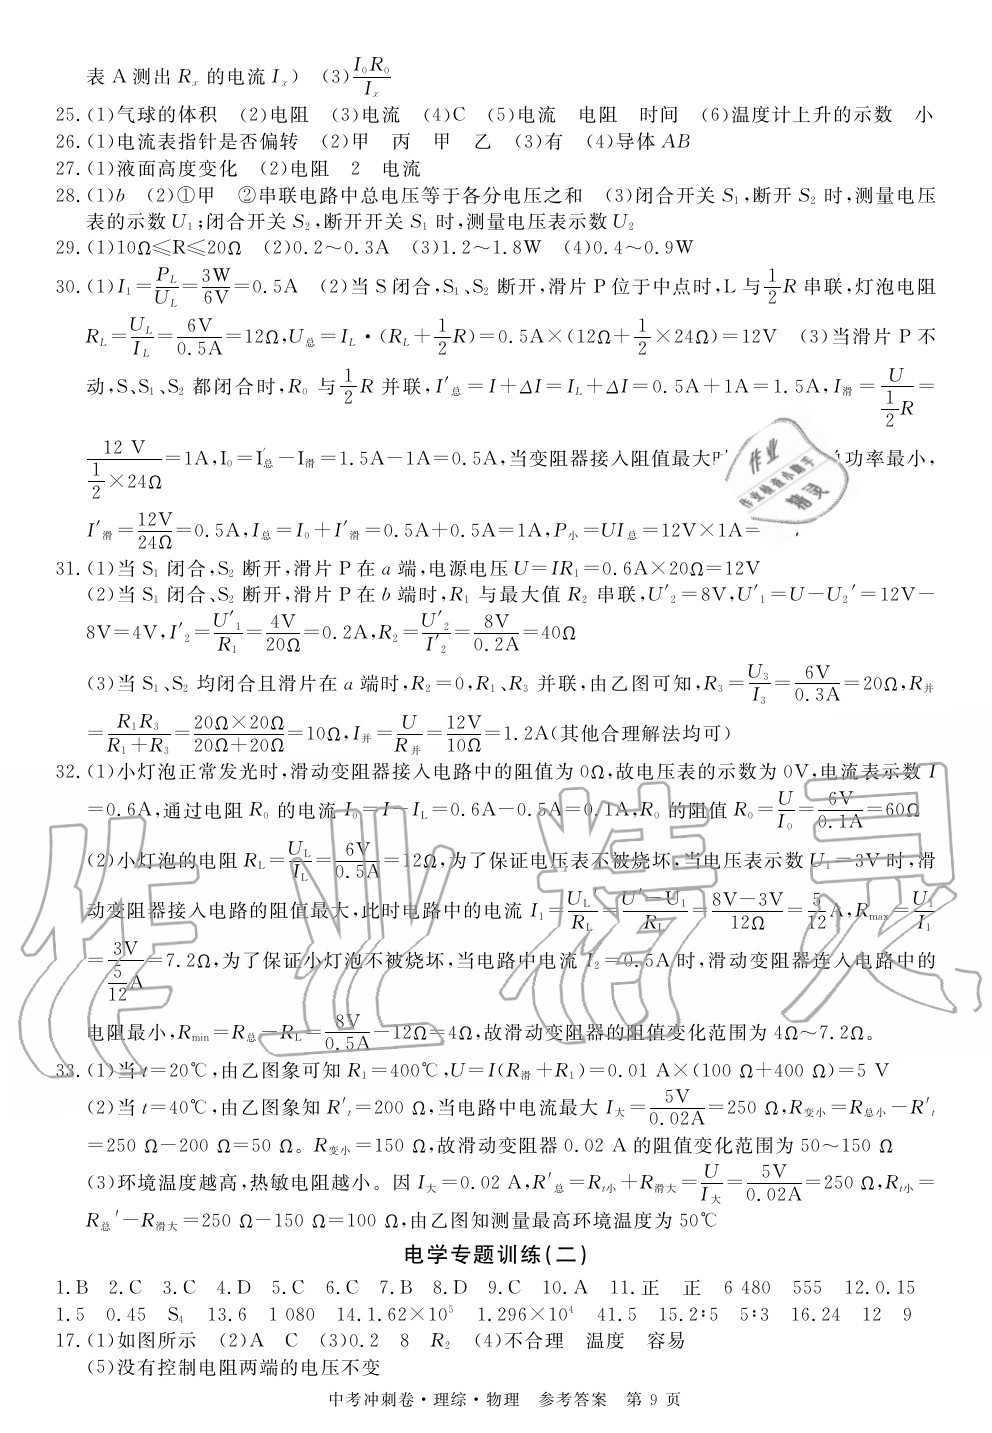 表 A 测出 Rₓ 的电流 Iₓ) (3)I₀R₀/Iₓ
25.(1)气球的体积 (2)电阻 (3)电流 (4)C (5)电流 电阻 时间 (6)温度计上升的示数 小
26.(1)电流表指针是否偏转 (2)甲 丙 甲 乙 (3)有 (4)导体 AB
27.(1)液面高度变化 (2)电阻 2 电流
28.(1)b (2)①甲 ②串联电路中总电压等于各分电压之和 (3)闭合开关 S₁,断开 S₂ 时,测量电压
表的示数 U₁;闭合开关 S₂,断开开关 S₁ 时,测量电压表示数 U₂
29.(1)10Ω≤R≤20Ω (2)0.2~0.3A (3)1.2~1.8W (4)0.4~0.9W
30.(1)I₁=P_L/U_L=3W/6V=0.5A (2)当 S 闭合,S₁、S₂ 断开,滑片 P 位于中点时,L 与 1/2 R 串联,灯泡电阻
R_L=U_L/I_L=6V/0.5A=12Ω,U总=I_L·(R_L+1/2 R)=0.5A×(12Ω+1/2×24Ω)=12V (3)当滑片 P 不
动,S、S₁、S₂ 都闭合时,R₀ 与 1/2 R 并联,I′总=I+ΔI=I_L+ΔI=0.5A+1A=1.5A,I滑=U/(1/2 R)=
12 V/(1/2×24Ω)=1A,I₀=I′总-I滑=1.5A-1A=0.5A,当变阻器接入阻值最大 功率最小,
I′滑=12V/24Ω=0.5A,I总=I₀+I′滑=0.5A+0.5A=1A,P小=UI总=12V×1A=
31.(1)当 S₁ 闭合,S₂ 断开,滑片 P 在 a 端,电源电压 U=IR₁=0.6A×20Ω=12V
(2)当 S₁ 闭合、S₂ 断开,滑片 P 在 b 端时,R₁ 与最大值 R₂ 串联,U′₂=8V,U′₁=U-U₂′=12V-
8V=4V,I′₂=U′₁/R₁=4V/20Ω=0.2A,R₂=U′₂/I′₂=8V/0.2A=40Ω
(3)当 S₁、S₂ 均闭合且滑片在 a 端时,R₂=0,R₁、R₃ 并联,由乙图可知,R₃=U₃/I₃=6V/0.3A=20Ω,R并
=R₁R₃/(R₁+R₃)=20Ω×20Ω/(20Ω+20Ω)=10Ω,I并=U/R并=12V/10Ω=1.2A(其他合理解法均可)
32.(1)小灯泡正常发光时,滑动变阻器接入电路中的阻值为 0Ω,故电压表的示数为 0V,电流表示数 I
=0.6A,通过电阻 R₀ 的电流 I₀=I-I_L=0.6A-0.5A=0.1A,R₀ 的阻值 R₀=U/I₀=6V/0.1A=60Ω
(2)小灯泡的电阻 R_L=U_L/I_L=6V/0.5A=12Ω,为了保证电压表不被烧坏,当电压表示数 U₁=3V 时,滑
动变阻器接入电路的阻值最大,此时电路中的电流 I₁=U_L/R_L=(U′-U₁)/R_L=(8V-3V)/12Ω=5/12 A,Rmax=U₁/I₁
=3V/(5/12 A)=7.2Ω,为了保证小灯泡不被烧坏,当电路中电流 I₂=0.5A 时,滑动变阻器连入电路中的
电阻最小,Rmin=R总-R_L=8V/0.5A-12Ω=4Ω,故滑动变阻器的阻值变化范围为 4Ω~7.2Ω。
33.(1)当 t=20℃,由乙图象可知 R₁=400℃,U=I(R滑+R₁)=0.01 A×(100 Ω+400 Ω)=5 V
(2)当 t=40℃,由乙图象知 R′ₜ=200 Ω,当电路中电流最大 I大=5V/0.02A=250 Ω,R变小=R总小-R′ₜ
=250 Ω-200 Ω=50 Ω。R变小=150 Ω,故滑动变阻器 0.02 A 的阻值变化范围为 50~150 Ω
(3)环境温度越高,热敏电阻越小。因 I大=0.02 A,R′总=Rₜ小+R滑大=U/I大=5V/0.02A=250 Ω,Rₜ小=
R总′-R滑大=250 Ω-150 Ω=100 Ω,由乙图知测量最高环境温度为 50℃
电学专题训练(二)
1.B 2.C 3.C 4.D 5.C 6.C 7.B 8.D 9.C 10.A 11.正 正 6 480 555 12.0.15
1.5 0.45 S₄ 13.6 1 080 14.1.62×10⁵ 1.296×10⁴ 41.5 15.2:5 5:3 16.24 12 9
17.(1)如图所示 (2)A C (3)0.2 8 R₂ (4)不合理 温度 容易
(5)没有控制电阻两端的电压不变
中考冲刺卷·理综·物理 参考答案 第 9 页
作业
作业检查小助手
精灵
作业精灵